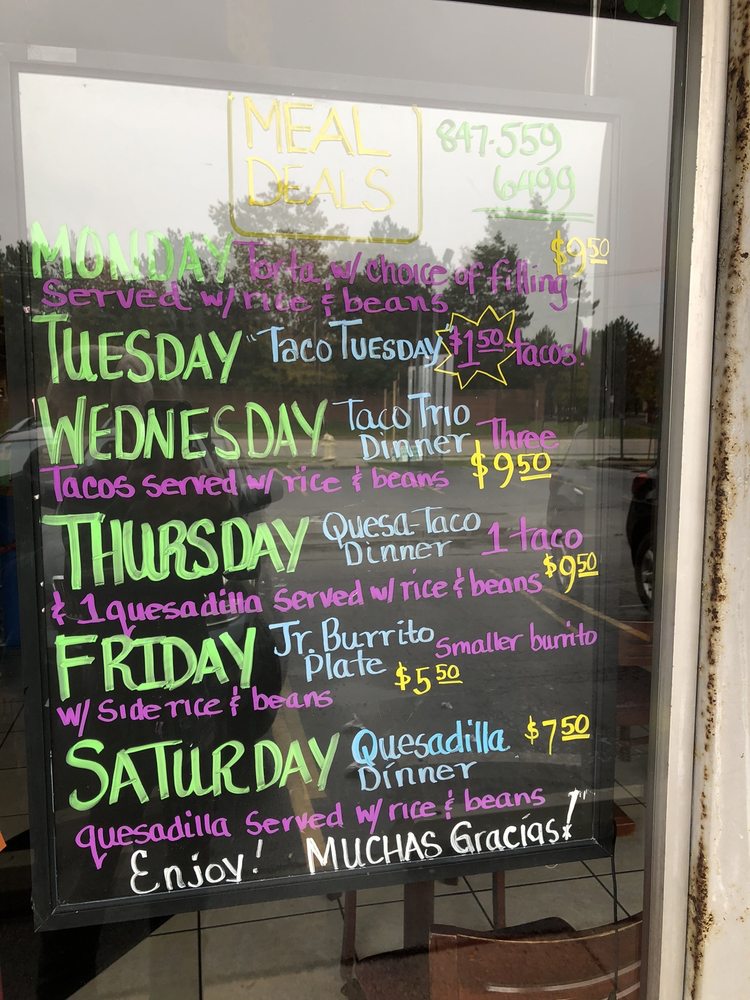 MEAL
DEALS
847-559
6499
MONDAY Torta w/ choice of filling $9.50
Served w/ rice & beans
TUESDAY "Taco TUESDAY" $1.50 tacos!
WEDNESDAY Taco Trio
Dinner Three
Tacos served w/ rice & beans $9.50
THURSDAY Quesa-Taco
Dinner 1 taco
& 1 quesadilla served w/ rice & beans $9.50
FRIDAY Jr. Burrito
Plate $5.50 Smaller burrito
w/ side rice & beans
SATURDAY Quesadilla $7.50
Dinner
quesadilla served w/ rice & beans
Enjoy! MUCHAS Gracias!